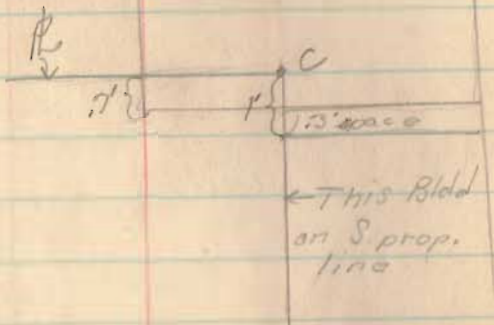 PL
C
.7'
1'
.3' space
←This Bldd
on S. prop.
line